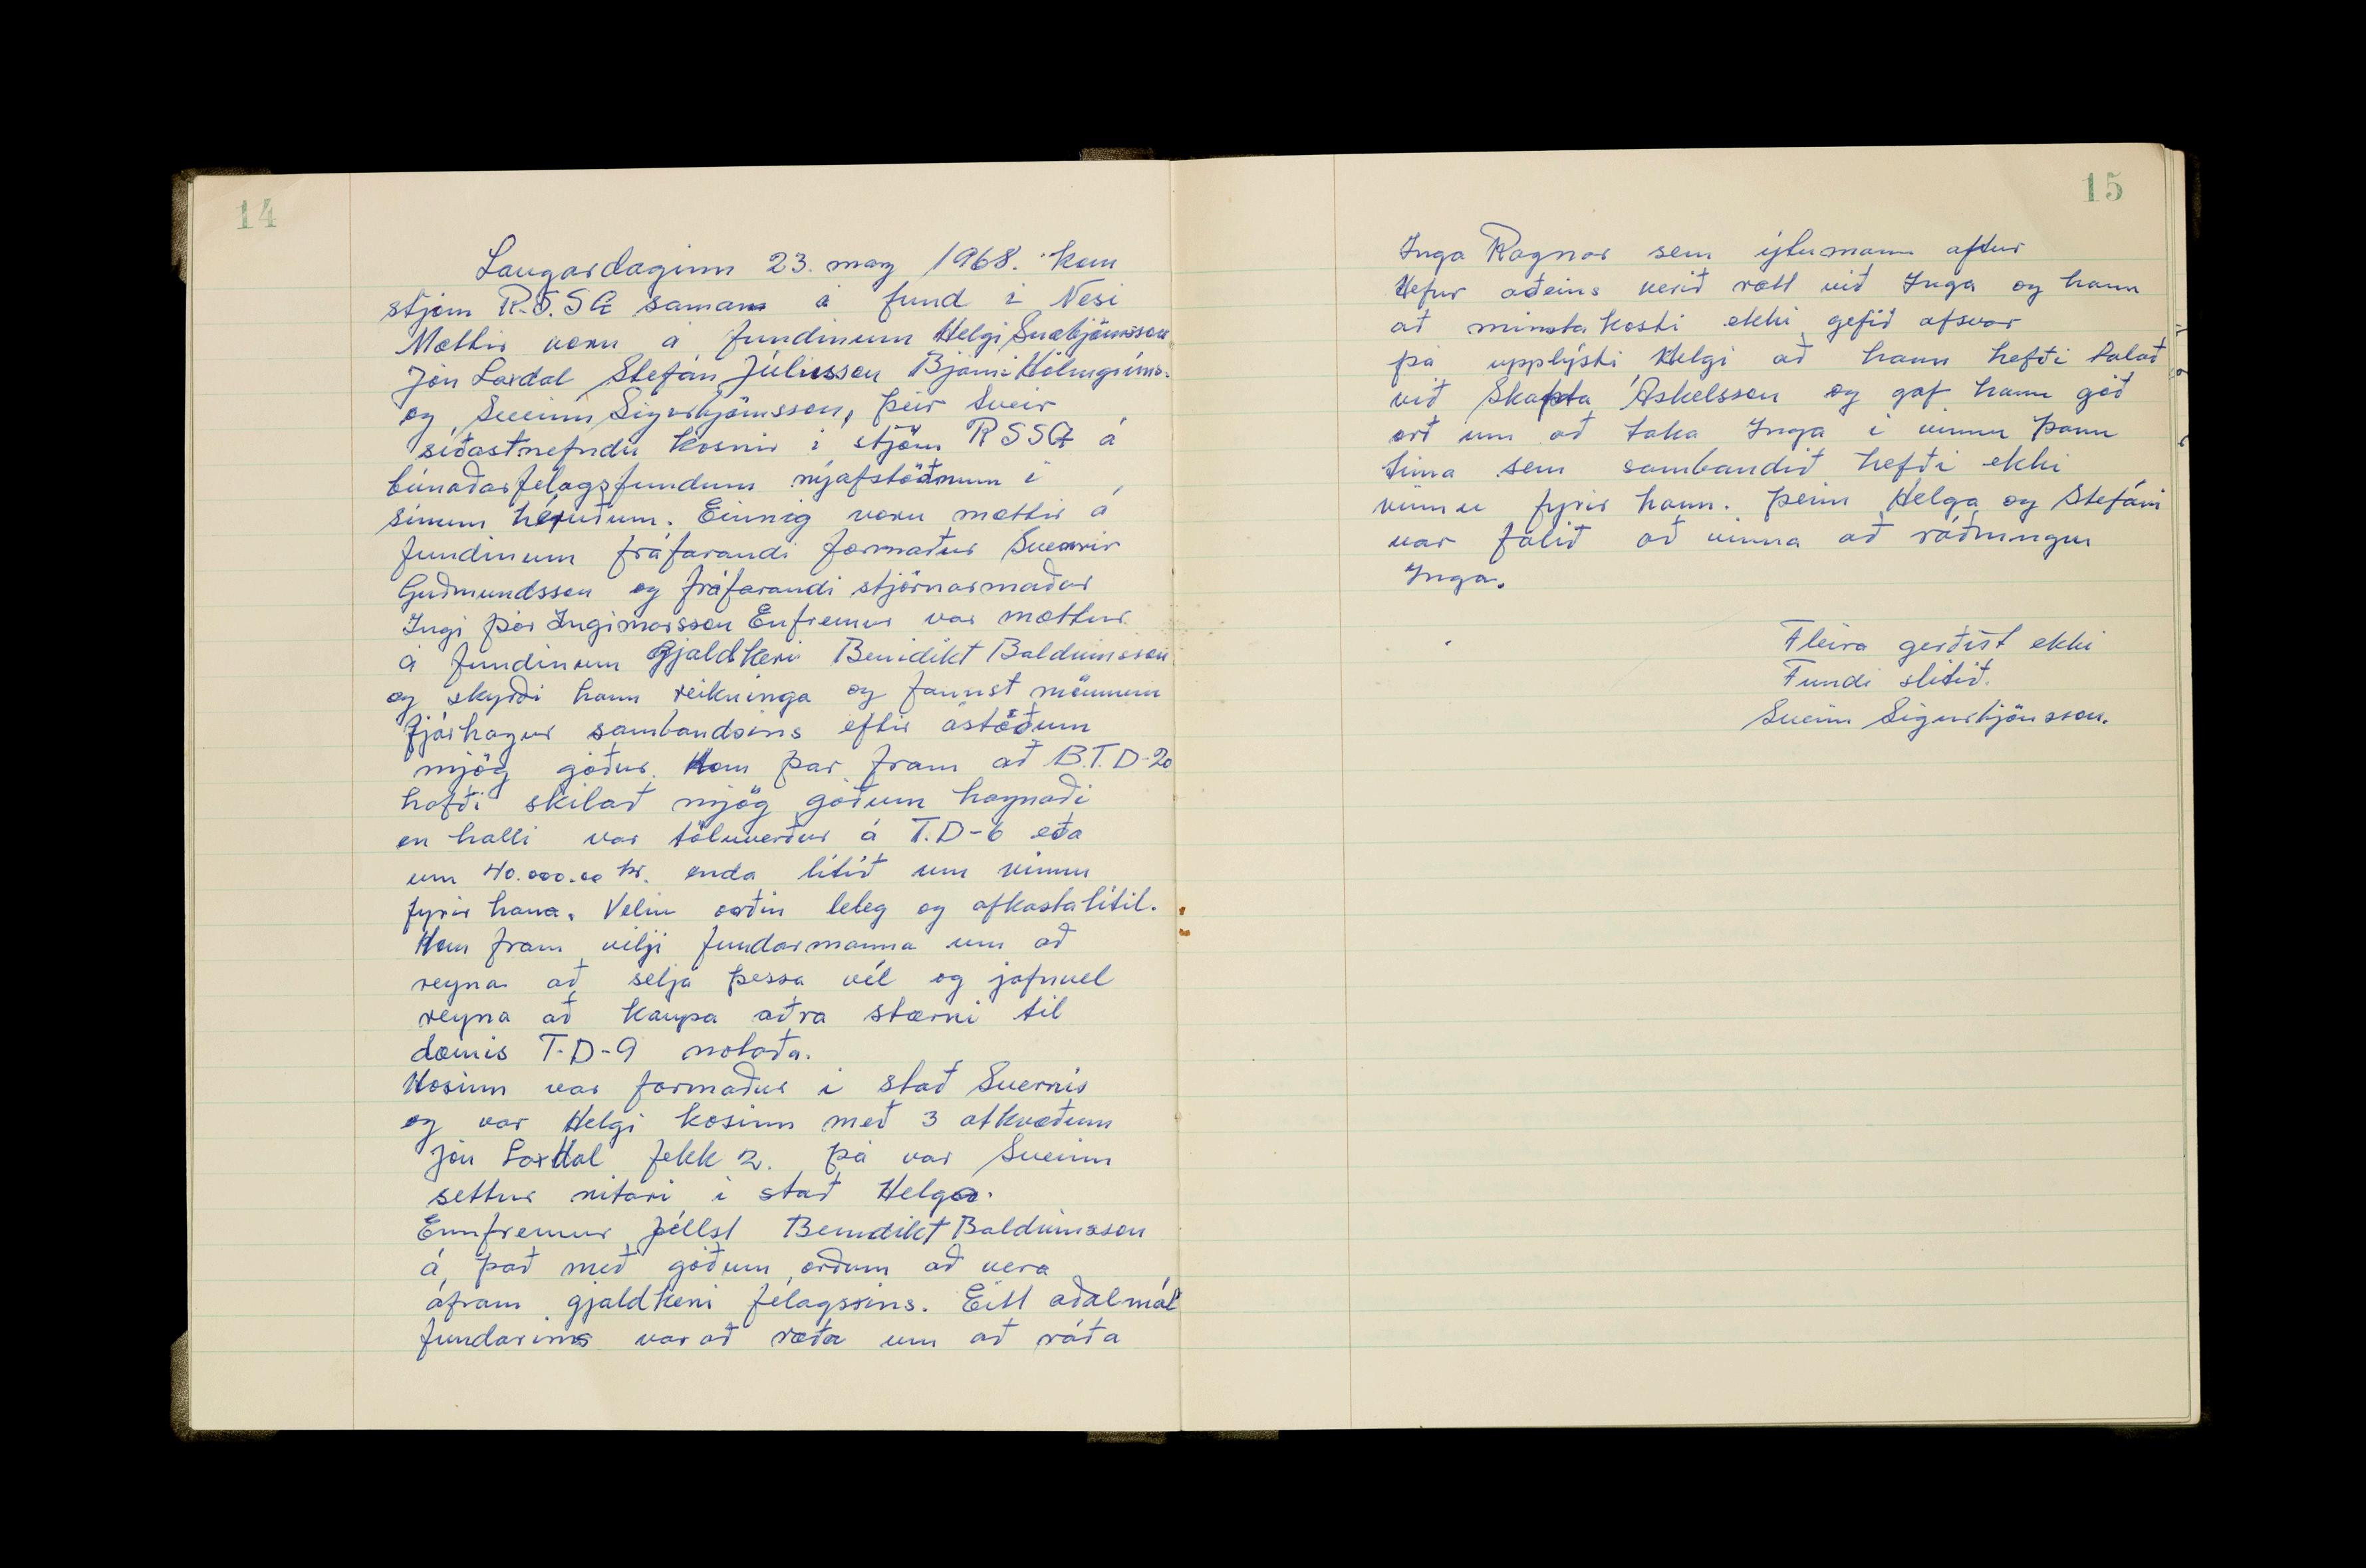 14
Laugardaginn 23. marz 1968. kom
stjórn R.S.S.E saman á fund í Nesi
Mættir voru á fundinum Helgi Snæbjörnsson
Jón Laxdal Stefán Júlíusson Bjarni Hólmgríms-
og Sveinn Sigurbjörnsson, þeir tveir
síðastnefndu kosnir í stjórn RSSE á
búnaðarfelagsfundum nýafstöðnum í
sínum héruðum. Einnig voru mættir á
fundinum fráfarandi formaður Sverrir
Guðmundsson og fráfarandi stjórnarmaður
Ingi þór Ingimarsson Enfremur var mættur
á fundinum gjaldkeri Benidikt Baldvinsson
og skyrði hann reikninga og fannst mönnum
fjárhagur sambandsins eftir ástöðum
mjög góður. Kom þar fram að B.T.D-20
hafði skilað mjög góðum hagnaði
en halli var töluverður á T.D-6 eða
um 40.000.00 kr. enda lítið um vinnu
fyrir hana. Velin orðin leleg og afkastalítil.
Kom fram vilji fundarmanna um að
reyna að selja þessa vél og jafnvel
reyna að kaupa aðra stærri til
dæmis T-D-9 notaða.
Kosinn var formaður í stað Sverris
og var Helgi kosinn með 3 atkvæðum
Jón Laxdal fekk 2. þá var Sveinn
settur ritari í stað Helga.
Ennfremur féllst Benidikt Baldvinsson
á það með góðum orðum að vera
áfram gjaldkeri félagssins. Eitt aðalmál
fundarins var að ræða um að ráða
15
Inga Ragnar sem ýtumann aftur
Hefur aðeins verið rætt við Inga og hann
að minsta kosti ekki gefið afsvar
þá upplýsti Helgi að hann hefði talað
við Skapta Áskelsson og gaf hann góð
orð um að taka Inga í vinnu þann
tíma sem sambandið hefði ekki
vinnu fyrir hann. þeim Helga og Stefáni
var falið að vinna að ráðningu
Inga.
Fleira gerðist ekki
Fundi slitið.
Sveinn Sigurbjörnsson.